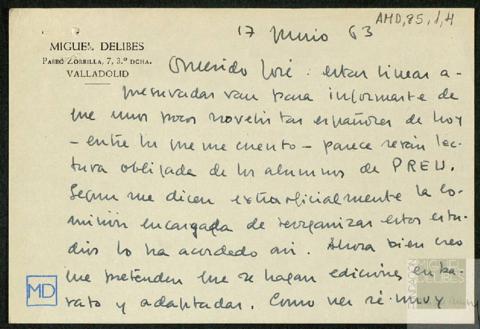 AMD, 85, 1, 4
17 Junio 63
MIGUEL DELIBES
PASEO ZORRILLA, 7, 3.º DCHA.
VALLADOLID
Querido José: estas líneas a-
presuradas van para informarte de
que unos pocos novelistas españoles de hoy
– entre los que me cuento – parece serán lec-
tura obligada de los alumnos de PREU.
Según me dicen extraoficialmente la co-
misión encargada de reorganizar estos estu-
dios lo ha acordado así. Ahora bien creo
que pretenden que se hagan ediciones en ba-
rato y adaptadas. Como ves sé muy
MD
FUNDACIÓN
MIGUEL
DELIBES